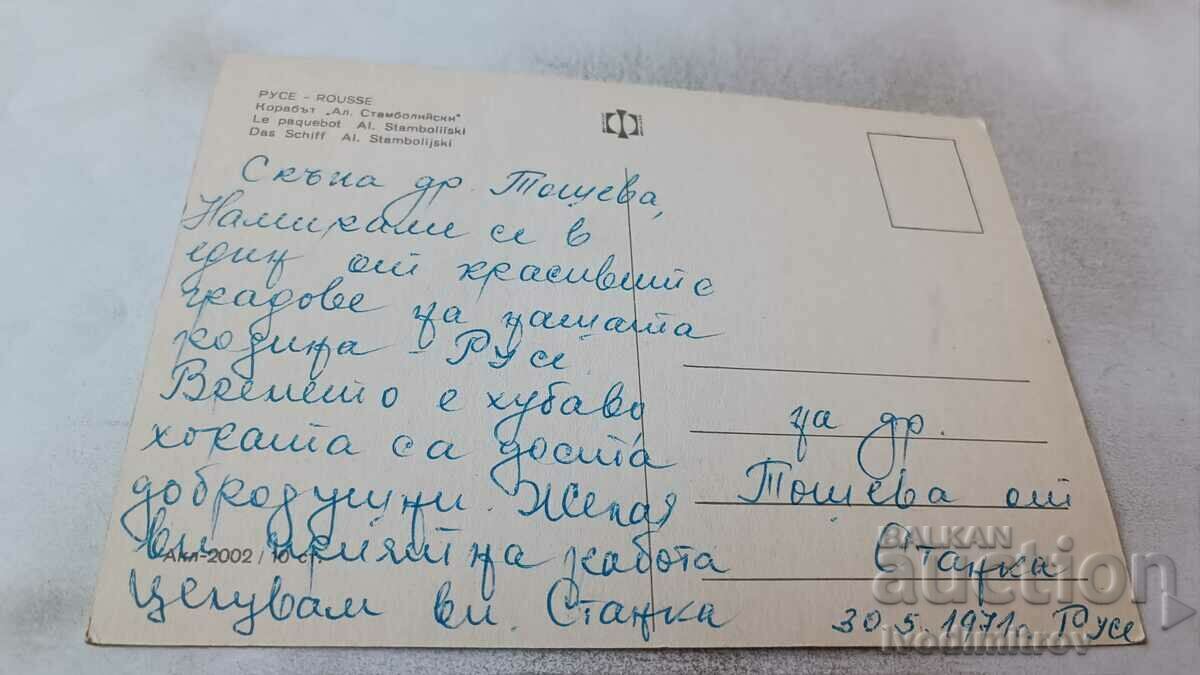 РУСЕ – ROUSSE
Корабът „Ал. Стамболийски“
Le paquebot Al. Stamboliĭski
Das Schiff Al. Stambolijski
Скъпа др. Тошева,
Намираме се в
един от красивите
градове на нашата
родина – Русе.
Времето е хубаво,
хората са доста
добродушни. Желая
ви приятна работа
Целувам ви. Станка
Акл-2002 / 10 ст.
на др.
Тошева от
Станка
30.5.1971г. Русе
BALKAN
auction
ivodimitrov